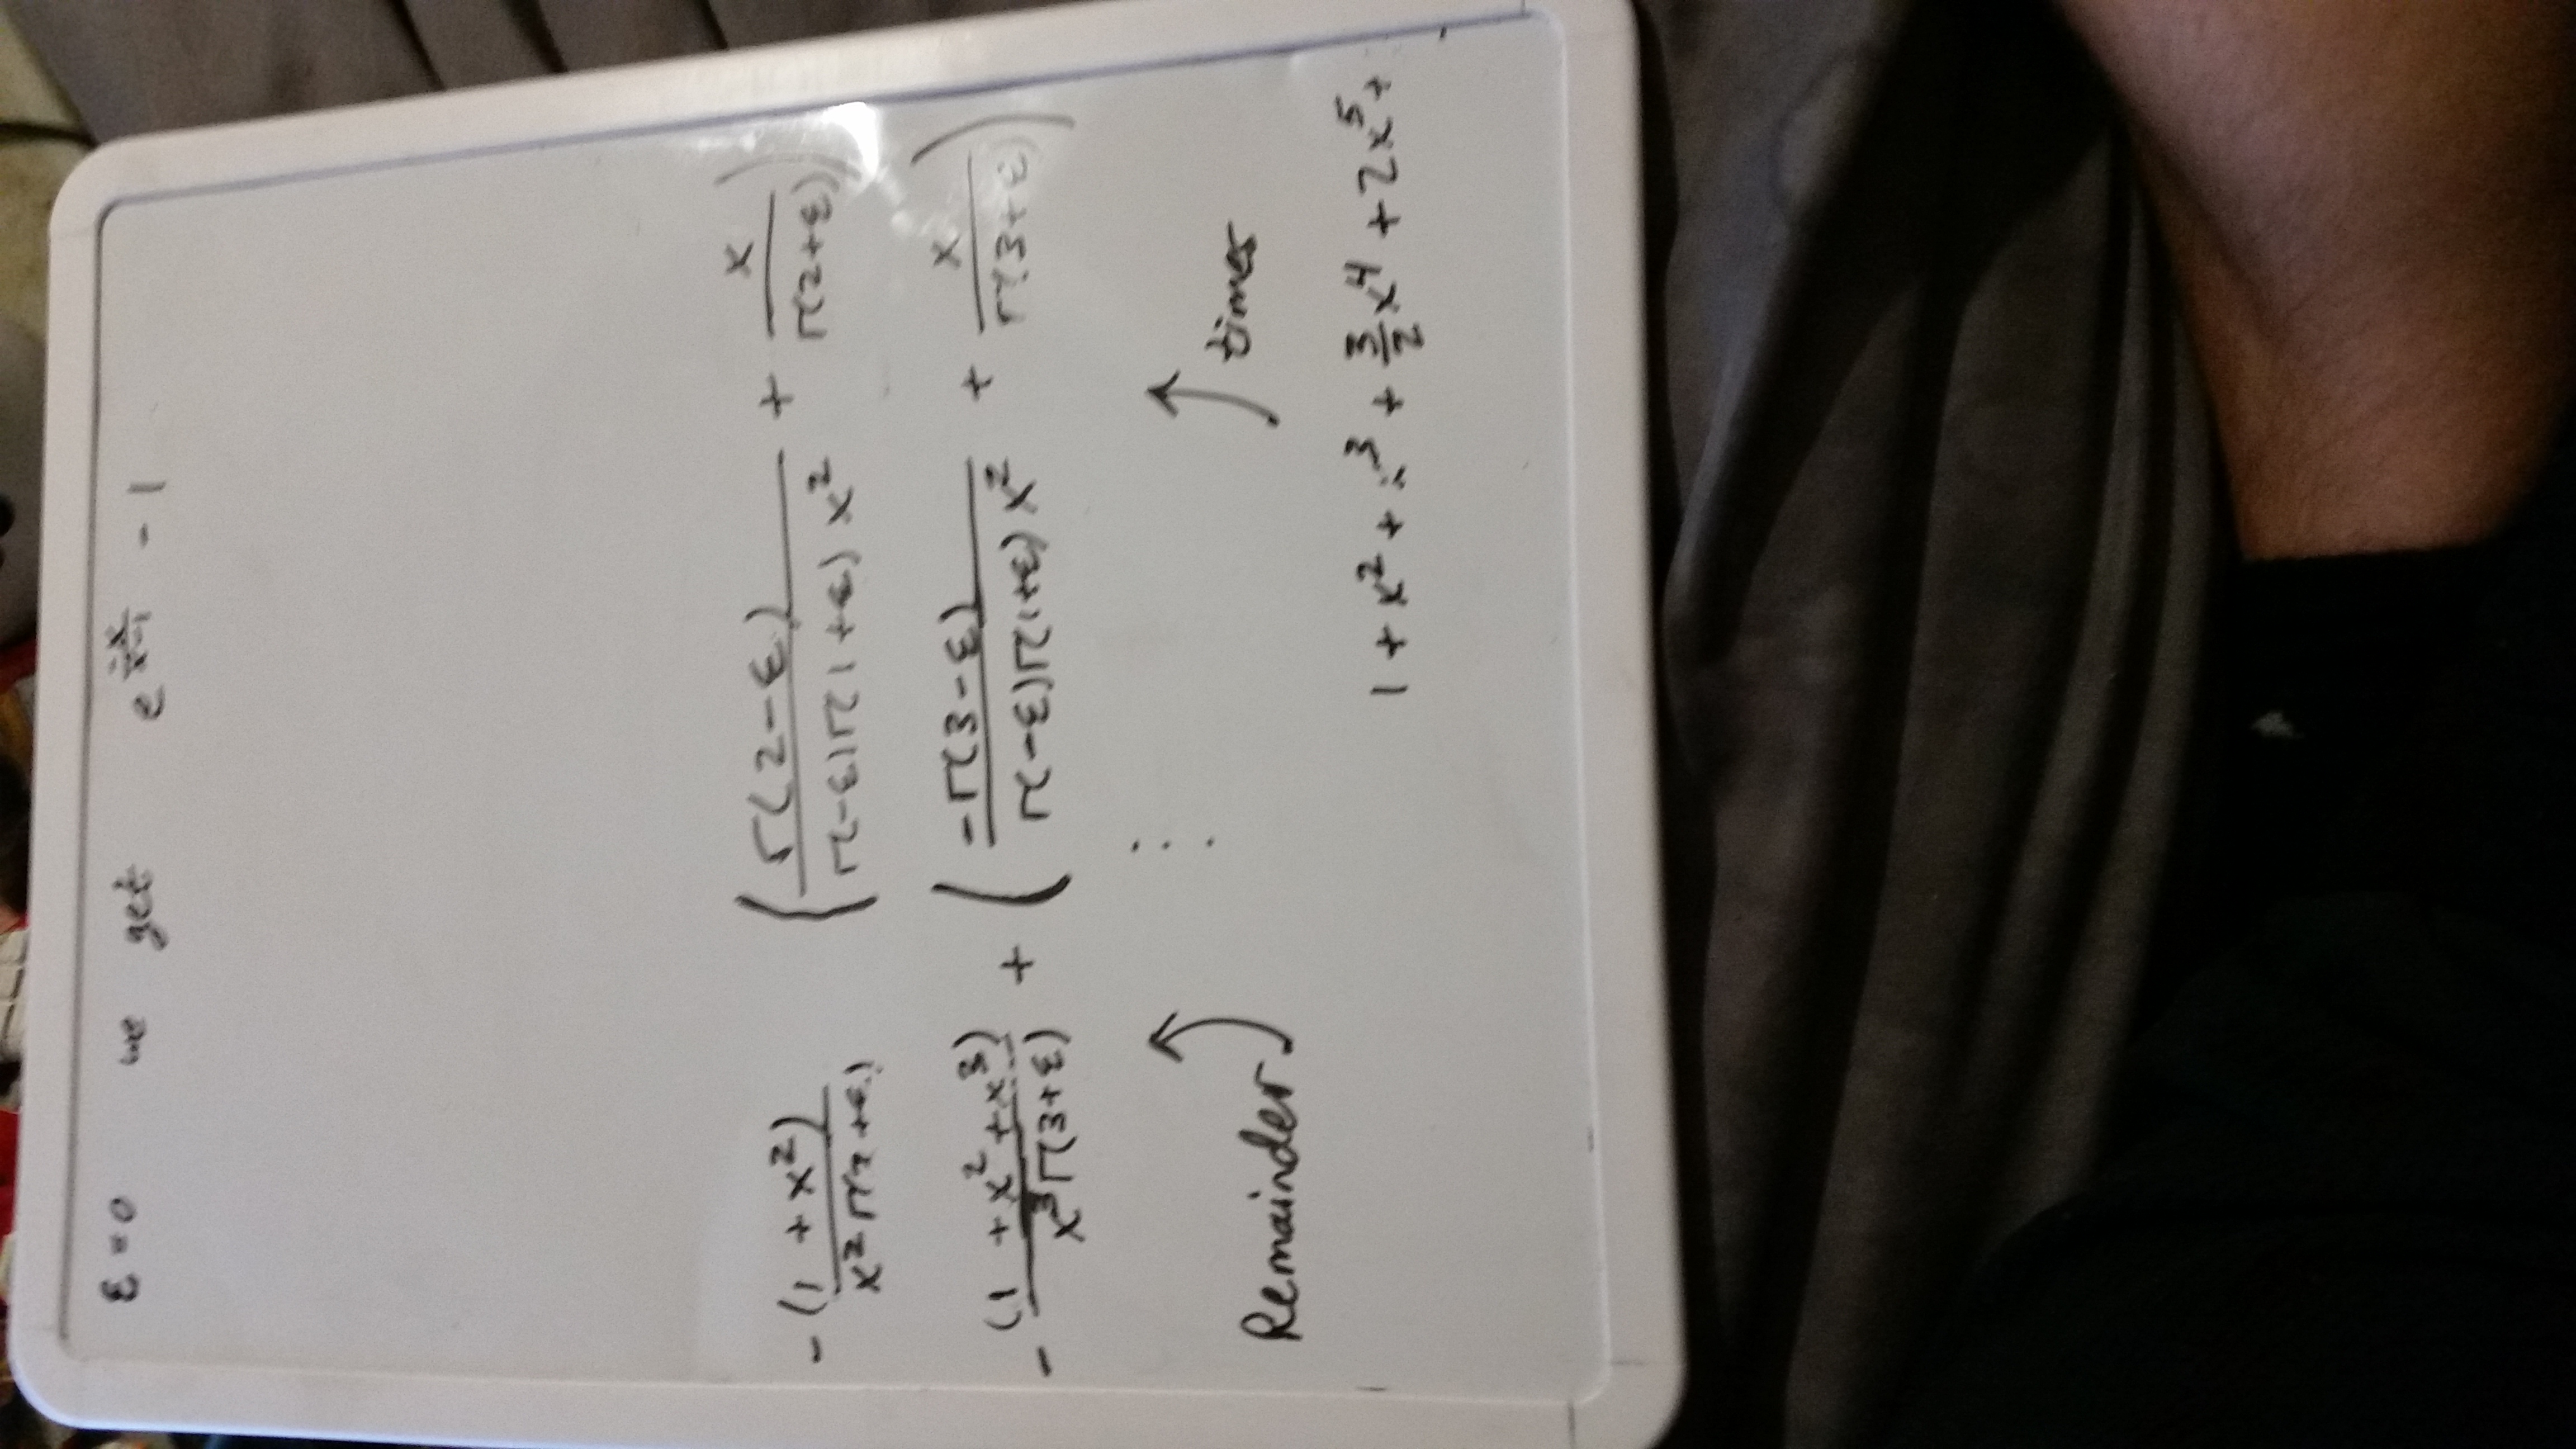 ε = 0 we get e^{\frac{-x}{x-1}} - 1
-\frac{(1 + x^2)}{x^2 Γ(2+ε)} \left( \frac{Γ(2-ε)}{Γ(-ε)Γ(1+ε) x^2} + \frac{x}{Γ(2+ε)} \right)
-\frac{(1 + x^2 + x^3)}{x^3 Γ(3+ε)} + \left( \frac{-Γ(3-ε)}{Γ(-ε)Γ(1+ε) x^2} + \frac{x}{Γ(3+ε)} \right)
⋮
Remainder ↑ ↑ times
1 + x^2 + x^3 + \frac{3}{2}x^4 + 2x^5 +